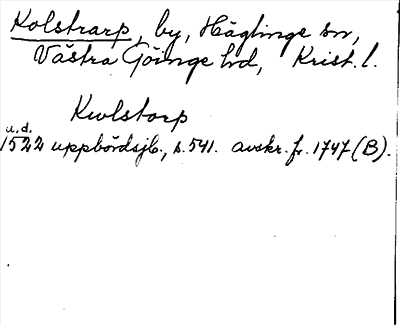 Kolstrarp, by, Häglinge sn,
Västra Göinge hd, Krist. l.
Kwlstorp
u.d.
1522 uppbördsjb., s. 541. avskr. fr. 1747 (B).